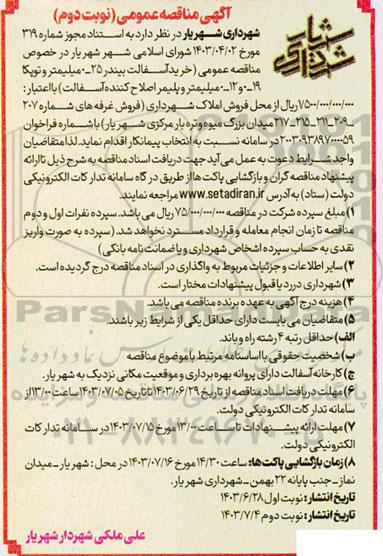 آگهی مناقصه عمومی (نوبت دوم)
شهرداری شهریار
شهرداری شهریار در نظر دارد به استناد مجوز شماره ۳۱۹
مورخ ۱۴۰۳/۰۴/۰۲ شورای اسلامی شهر شهریار در خصوص
مناقصه عمومی (خرید آسفالت بیندر ۲۵-۰ میلیمتر و توپکا
۱۹-۰ و ۱۲-۰ میلیمتر و پلیمر اصلاح کننده آسفالت) با اعتبار:
۷۵۰۰/۰۰۰/۰۰۰/۰۰۰ ریال از محل فروش املاک شهرداری (فروش غرفه های شماره ۲۰۷
-۲۰۹-۲۱۱-۲۱۵-۲۱۷ میدان بزرگ میوه و تره بار مرکزی شهریار) با شماره فراخوان
۲۰۰۳۰۹۳۸۹۷۰۰۰۰۵۹ در سامانه نسبت به انتخاب پیمانکار اقدام نماید. لذا متقاضیان
واجد شرایط دعوت به عمل می آید جهت دریافت اسناد مناقصه به شرح ذیل تا ارائه
پیشنهاد مناقصه گران و بازگشایی پاکت ها از طریق درگاه سامانه تدارکات الکترونیکی
دولت (ستاد) به آدرس www.setadiran.ir مراجعه نمایند.
۱) مبلغ سپرده شرکت در مناقصه ۷۵/۰۰۰/۰۰۰/۰۰۰ ریال می باشد. سپرده نفرات اول و دوم
مناقصه تا زمان انجام معامله و قرارداد مسترد نخواهد شد. (سپرده به صورت واریز
نقدی به حساب سپرده اشخاص شهرداری و یا ضمانت نامه بانکی)
۲) سایر اطلاعات و جزئیات مربوط به واگذاری در اسناد مناقصه درج گردیده است.
۳) شهرداری در رد یا قبول پیشنهادات مختار است.
۴) هزینه درج آگهی به عهده برنده مناقصه می باشد.
۵) متقاضیان می بایست دارای حداقل یکی از شرایط زیر باشند.
الف) حداقل رتبه ۴ رشته راه و باند.
ب) شخصیت حقوقی با اساسنامه مرتبط با موضوع مناقصه
ج) کارخانه آسفالت دارای پروانه بهره برداری و موقعیت مکانی نزدیک به شهریار.
۶) مهلت دریافت اسناد مناقصه از تاریخ ۱۴۰۳/۰۶/۲۹ تا تاریخ ۱۴۰۳/۰۷/۰۵ ساعت ۱۳/۰۰ از
سامانه تدارکات الکترونیکی دولت.
۷) مهلت ارائه پیشنهادات تا ساعت ۱۳/۰۰ مورخ ۱۴۰۳/۰۷/۱۵ در سامانه تدارکات
الکترونیکی دولت.
۸) زمان بازگشایی پاکت ها: ساعت ۱۴/۳۰ مورخ ۱۴۰۳/۰۷/۱۶ در محل: شهریار-میدان
نماز-جنب پایانه ۲۲ بهمن-شهرداری شهریار.
تاریخ انتشار: نوبت اول ۱۴۰۳/۶/۲۸
تاریخ انتشار: نوبت دوم ۱۴۰۳/۷/۴
علی ملکی شهردار شهریار